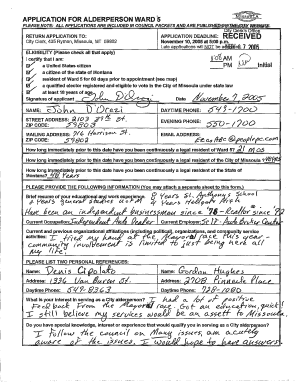 APPLICATION FOR ALDERPERSON WARD 5
PLEASE NOTE: ALL APPLICATIONS ARE INCLUDED IN COUNCIL PACKETS AND ARE PUBLISHED
City Clerk's Office
RETURN APPLICATION TO:
City Clerk, 435 Ryman, Missoula, MT 59802
APPLICATION DEADLINE:
November 10, 2005 at 5:00 p.m.
Late applications will NOT be
ELIGIBILITY (Please check all that apply)
I certify that I am:
a United States citizen
a citizen of the state of Montana
resident of Ward 5 for 60 days prior to appointment (see map)
a qualified elector registered and eligible to vote in the City of Missoula under state law
at least 18 years of age
AM
PM
Initial
Signature of applicant
November 7, 2005
NAME: John D'Orazi
DAYTIME PHONE: 543-1700
STREET ADDRESS:
ZIP CODE: 59803
EVENING PHONE: 550-1700
MAILING ADDRESS: 716 Harrison St.
ZIP CODE: 59802
EMAIL ADDRESS
How long immediately prior to this date have you continuously been a legal resident of Ward 5?
How long immediately prior to this date have you continuously been a legal resident of the City of Missoula
How long immediately prior to this date have you continuously been a legal resident of the State of
Montana?
PLEASE PROVIDE THE FOLLOWING INFORMATION (You may attach a separate sheet to this form).
Brief resume of your educational and work experience: 8 years St. Anthony's School
years general studies UofM 4 years Hellgate High
Have been an independent businessman since '78 - Realtor since '92
Current Occupation:
Current Employer:
Current and previous organizational affiliations (including political), organizations, and community service
activities: I tried my hand at the Mayoral race this year -
community involvement is limited to just being here all
my life.
PLEASE LIST TWO PERSONAL REFERENCES:
Name: Denis
Name: Gordon Hughes
Address: 1336 Van Buren St.
Address: 2708 Pinnacle Place
Daytime Phone: 549-8363
Daytime Phone: 728-
What is your interest in serving as a City alderperson? I had a lot of positive
feedback from the Mayoral race. Got an education, quick!
I still believe my services would be an asset to Missoula.
Do you have special knowledge, interest or experience that would qualify you in serving as a City alderperson?
I follow the council on many issues, am acutely
aware of the issues. I would hope to have answers!